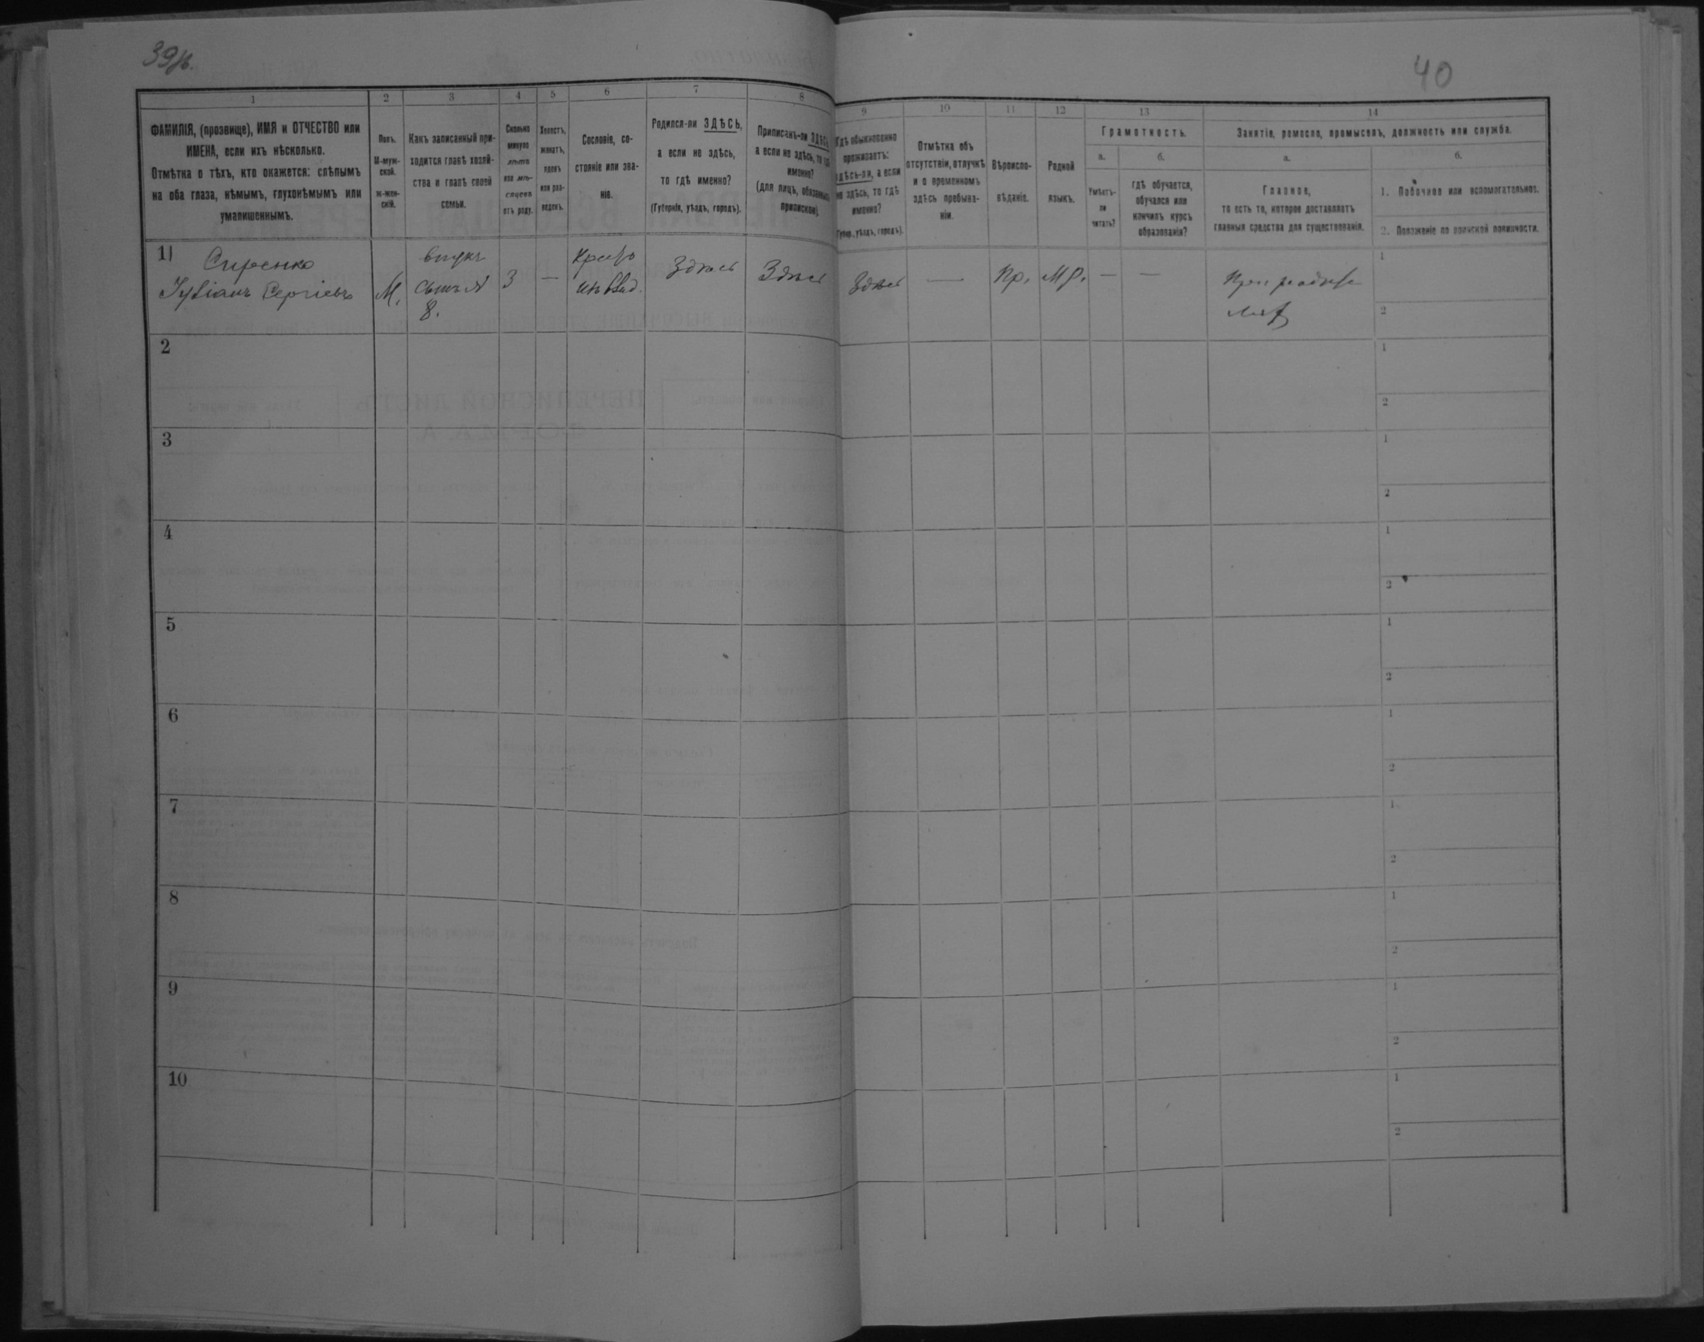 40
1
2
3
4
5
6
7
8
9
10
11
12
13
14
ФАМИЛІЯ, (прозвище), ИМЯ и ОТЧЕСТВО или
ИМЕНА, если ихъ нѣсколько.
Отмѣтка о тѣхъ, кто окажется: слѣпымъ
на оба глаза, нѣмымъ, глухонѣмымъ или
умалишеннымъ.
Полъ.
М-муж-
ской.
ж-жен-
скій.
Какъ записанный при-
ходится главѣ хозяй-
ства и главѣ своей
семьи.
Сколько
минуло
лѣтъ
или мѣ-
сяцевъ
отъ роду.
Холостъ,
женатъ,
вдовъ
или раз-
веденъ.
Сословіе, со-
стояніе или зва-
ніе.
Родился-ли ЗДѢСЬ,
а если не здѣсь,
то гдѣ именно?
(Губернія, уѣздъ, городъ).
Приписанъ-ли ЗДѢСЬ,
а если не здѣсь, то гдѣ
именно?
(для лицъ, обязанныхъ
припискою).
Гдѣ обыкновенно
проживаетъ:
здѣсь-ли, а если
не здѣсь, то гдѣ
именно?
(Губер., уѣздъ, городъ).
Отмѣтка объ
отсутствіи, отлучкѣ
и о временномъ
здѣсь пребыва-
ніи.
Вѣроиспо-
вѣданіе.
Родной
языкъ.
Грамотность.
а.
б.
Умѣетъ-
ли
читать?
гдѣ обучается,
обучался или
кончилъ курсъ
образованія?
Занятіе, ремесло, промыселъ, должность или служба.
а.
б.
Главное,
то есть то, которое доставляетъ
главныя средства для существованія.
1. Побочное или вспомогательное.
2. Положеніе по воинской повинности.
1 Сиренко
Іуліанъ Сергіевъ
М.
внукъ
сынъ №
8.
3
—
Крест
изъ влад.
Здѣсь
Здѣсь
Здѣсь
—
Пр.
Мр.
—
—
При родите
ляхъ
1
2
2
1
2
3
1
2
4
1
2
5
1
2
6
1
2
7
1
2
8
1
2
9
1
2
10
1
2